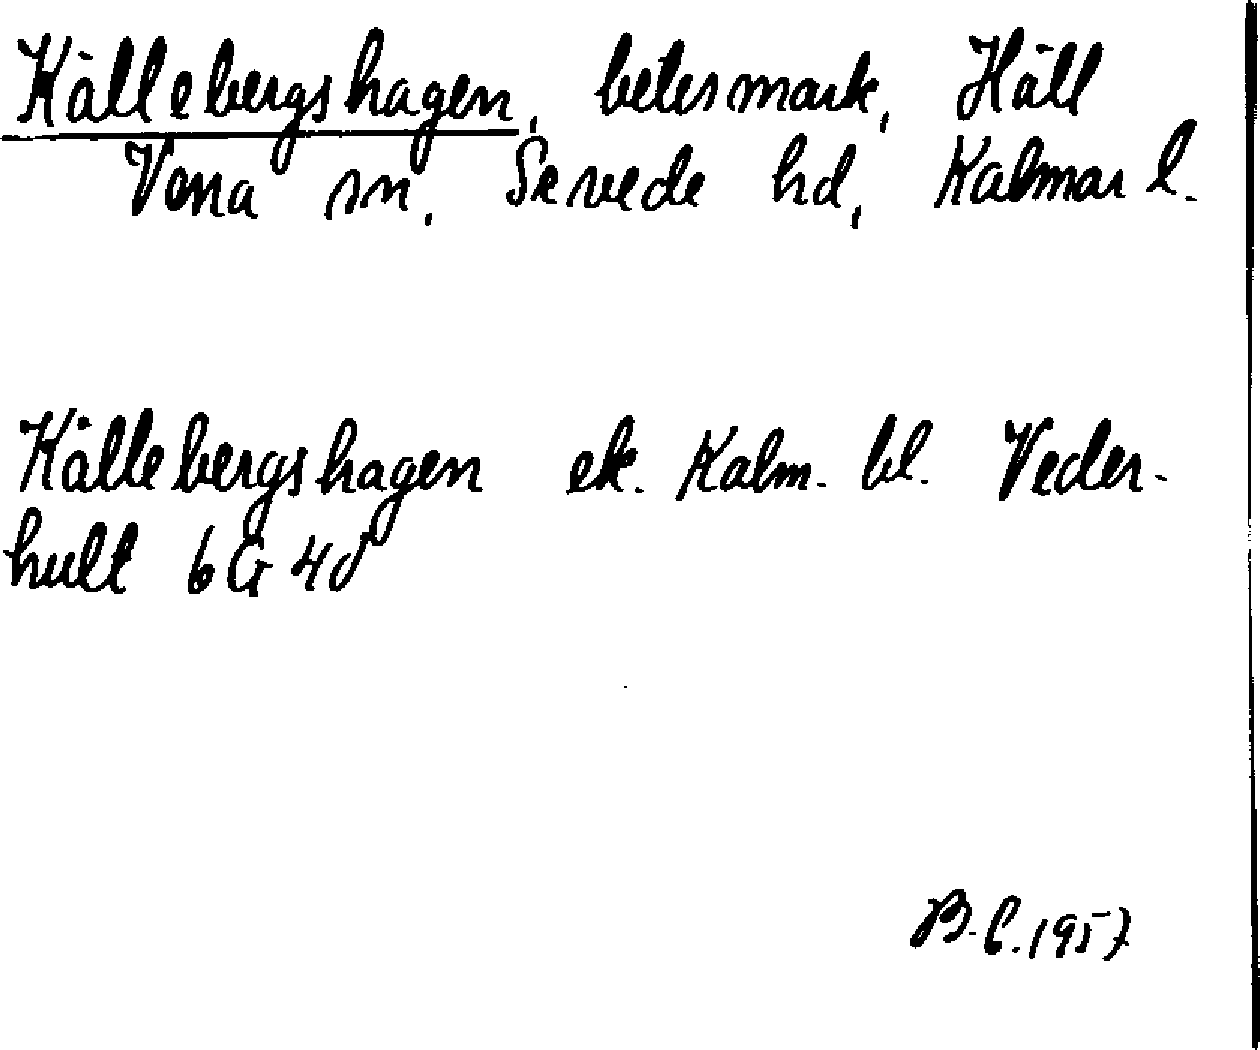 Källebergshagen, betesmark, Häll
Vena sn, Sevede hd, Kalmar l.
Källebergshagen ek. Kalm. bl. Veder-
hult 6G 4d
B.C. 1957